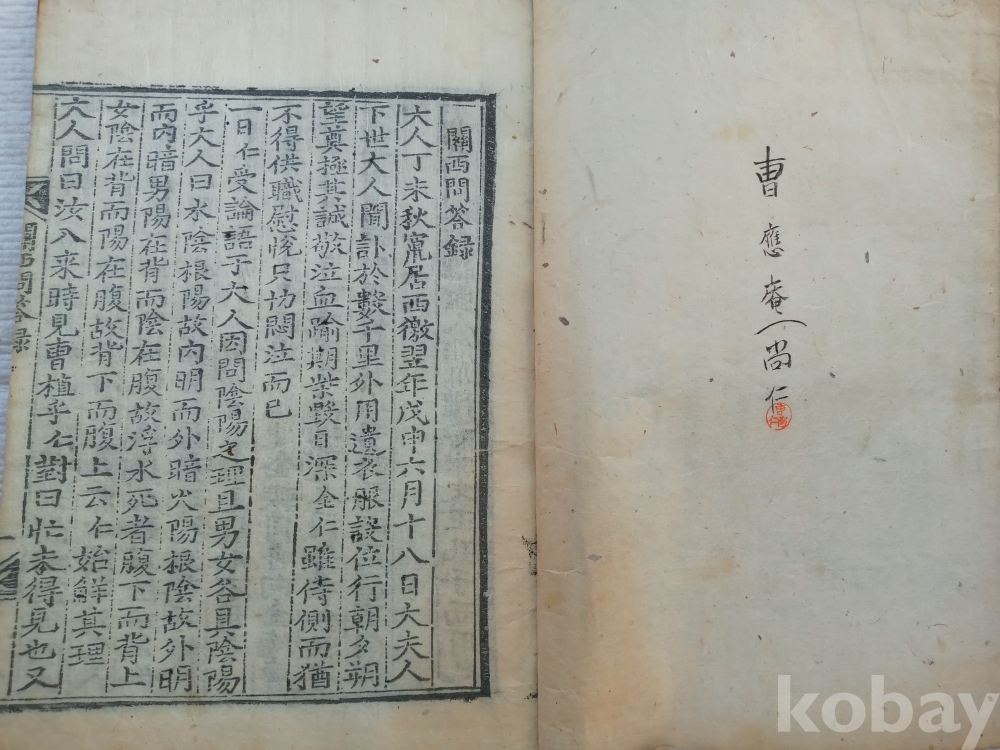 曹應庵(尙仁
關西問答録
大人丁未秋竄居西徼翌年戊申六月十八日大夫人
下世大人聞訃於數千里外用遺衣服設位行朝夕朔
望奠極其誠敬泣血踰期柴毁日深全仁雖侍側而猶
不得供職慰悅只切悶泣而已
一日仁受論語于大人因問陰陽之理且男女各具陰陽
乎大人曰水陰根陽故内明而外暗火陽根陰故外明
而内暗男陽在背而陰在腹故浮水死者腹下而背上
女陰在背而陽在腹故背下而腹上云仁始觧其理
大人問曰汝入来時見曹植乎仁對曰忙未得見也又
關西問答録 一
kobay